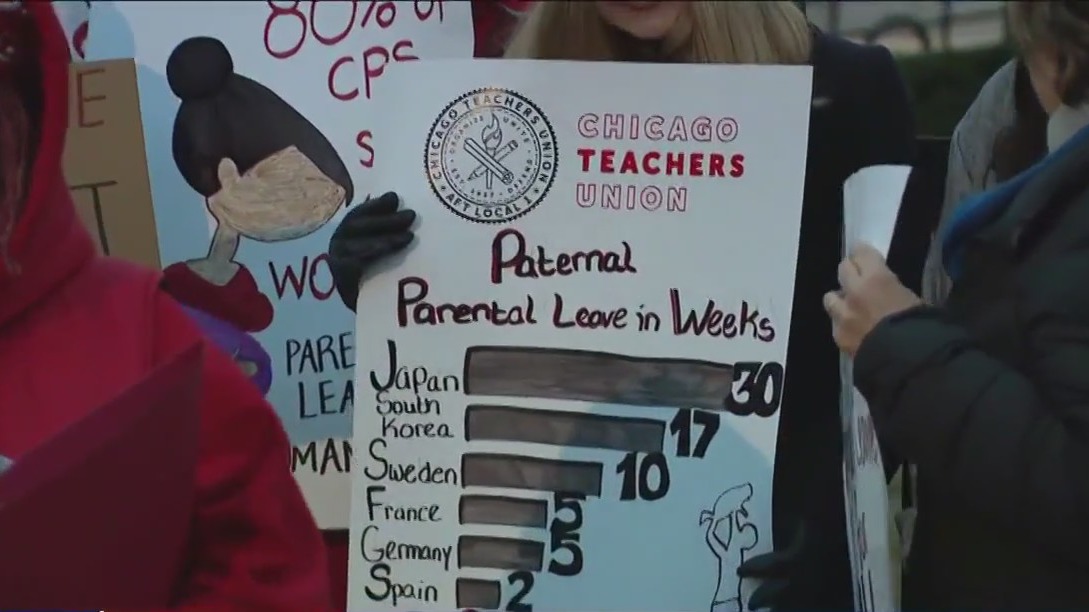 80% OF
CPS
S
E
T
WO
PARE
LEA
MAN
CHICAGO TEACHERS UNION
ORGANIZE UNITE
EST. 1937 DEFEND
AFT LOCAL 1
CHICAGO
TEACHERS
UNION
Paternal
Parental Leave in Weeks
Japan 30
South
Korea 17
Sweden 10
France 5
Germany 5
Spain 2